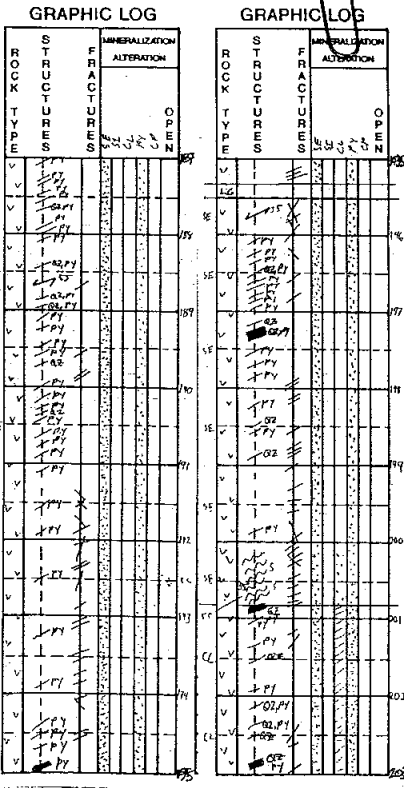 GRAPHIC LOG
ROCK TYPE
STRUCTURES
FRACTURES
MINERALIZATION
ALTERATION
SE
CL
PY
CP
OPEN
PY
PY
PY
QZ,PY
PY
PY
188
QZ,PY
QZ,PY
189
QZ,PY
PY
PY
PY
PY
QZ
PY
190
PY
PY
QZ
PY
PY
PY
PY
191
PY
PY
192
PY
193
PY
PY
194
PY
PY
PY
PY
195
GRAPHIC LOG
ROCK TYPE
STRUCTURES
FRACTURES
MINERALIZATION
ALTERATION
SE
CL
PY
CP
OPEN
195
SE
196
PY
PY
PY
QZ,PY
SE
PY
PY
PY
PY
197
QZ
QZ,PY
SE
PY
PY
PY
198
PY
QZ
SE
PY
QZ
199
SE
PY
200
S
SE
QZ
201
PY
PY
CL
QZ
PY
202
QZ,PY
QZ,PY
CL
QZ
QZ
PY
203